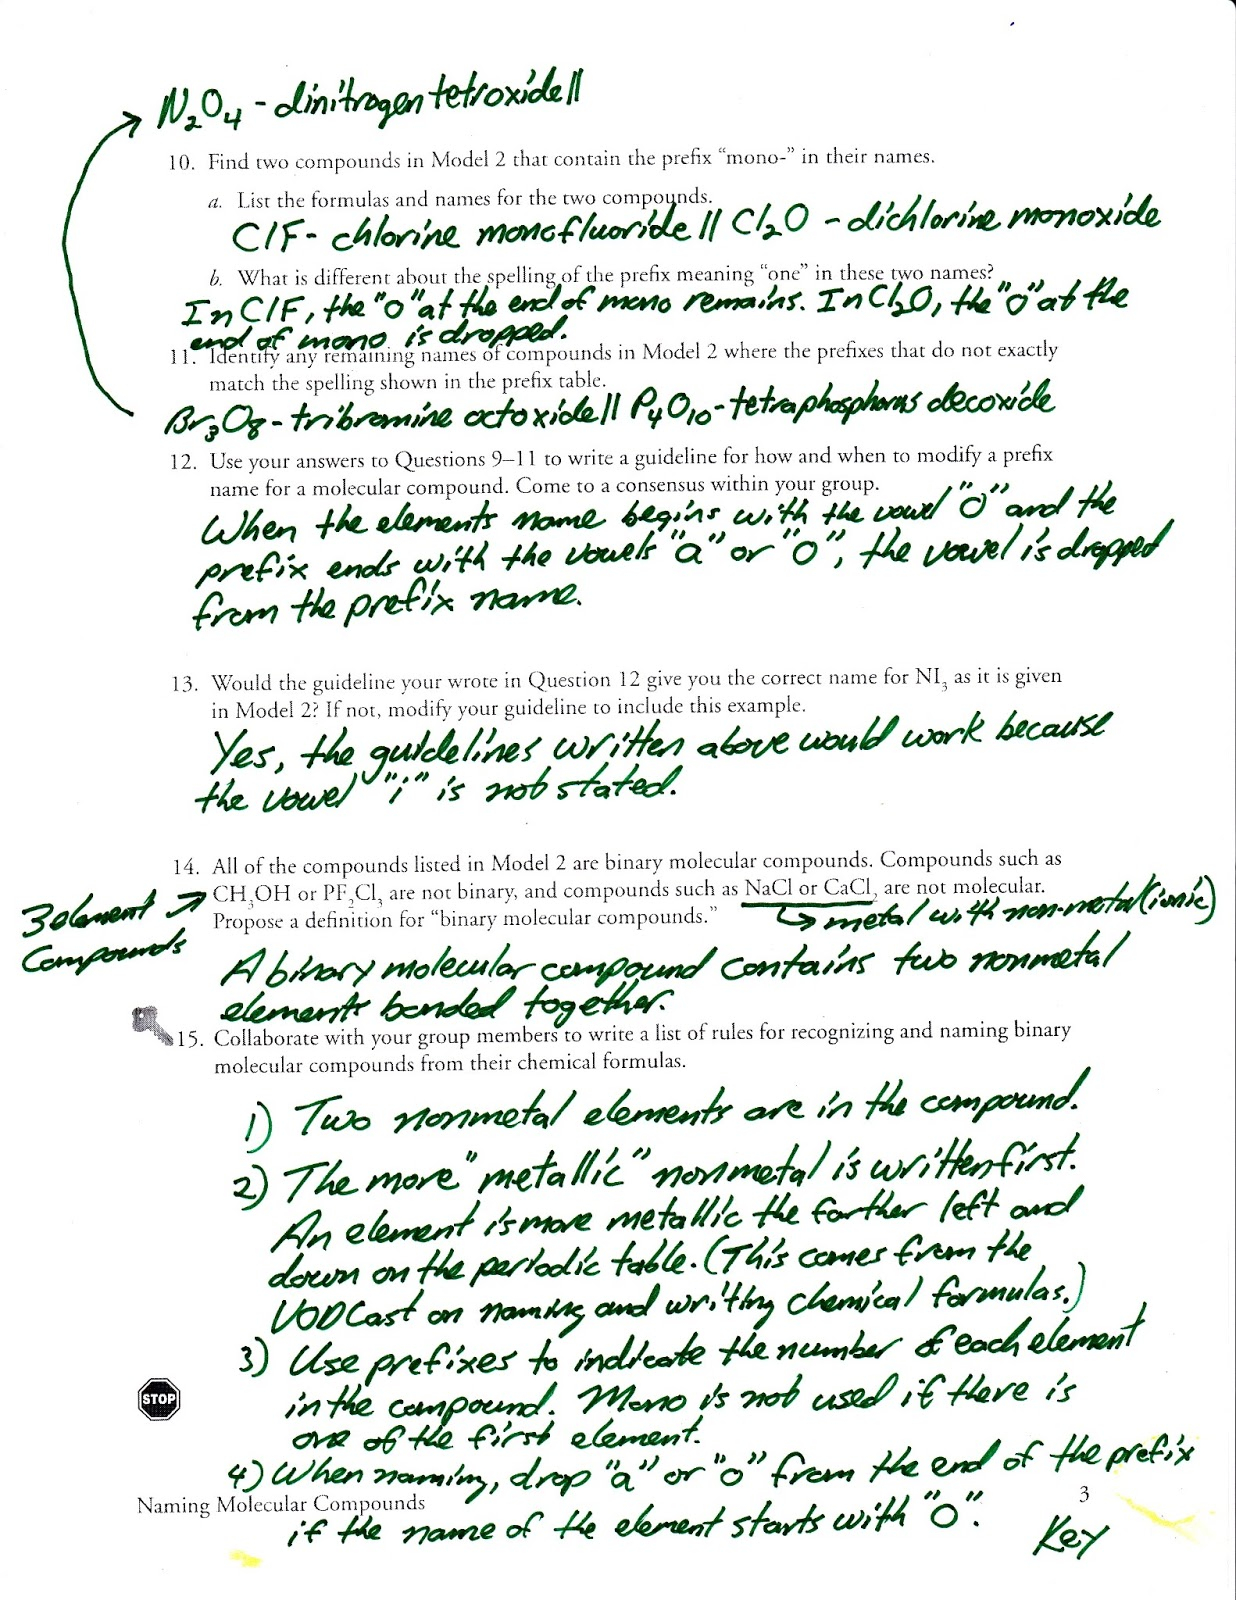 N₂O₄ - dinitrogen tetroxide//
10. Find two compounds in Model 2 that contain the prefix “mono-” in their names.
a. List the formulas and names for the two compounds.
ClF - chlorine monofluoride // Cl₂O - dichlorine monoxide
b. What is different about the spelling of the prefix meaning “one” in these two names?
In ClF, the "o" at the end of mono remains. In Cl₂O, the "o" at the
end of mono is dropped.
11. Identify any remaining names of compounds in Model 2 where the prefixes that do not exactly
match the spelling shown in the prefix table.
Br₃O₈ - tribromine octoxide // P₄O₁₀ - tetraphosphorus decoxide
12. Use your answers to Questions 9–11 to write a guideline for how and when to modify a prefix
name for a molecular compound. Come to a consensus within your group.
When the elements name begins with the vowel "O" and the
prefix ends with the vowels "a" or "o", the vowel is dropped
from the prefix name.
13. Would the guideline your wrote in Question 12 give you the correct name for NI₃ as it is given
in Model 2? If not, modify your guideline to include this example.
Yes, the guidelines written above would work because
the vowel "i" is not stated.
14. All of the compounds listed in Model 2 are binary molecular compounds. Compounds such as
3 element → CH₃OH or PF₂Cl₃ are not binary, and compounds such as NaCl or CaCl₂ are not molecular.
Compounds
Propose a definition for “binary molecular compounds.” ↳ metal with non-metal (ionic)
A binary molecular compound contains two nonmetal
elements bonded together.
15. Collaborate with your group members to write a list of rules for recognizing and naming binary
molecular compounds from their chemical formulas.
1) Two nonmetal elements are in the compound.
2) The more "metallic" nonmetal is written first.
An element is more metallic the farther left and
down on the periodic table. (This comes from the
VODCast on naming and writing chemical formulas.)
3) Use prefixes to indicate the number of each element
in the compound. Mono is not used if there is
one of the first element.
STOP
4) When naming, drop "a" or "o" from the end of the prefix
Naming Molecular Compounds 3
if the name of the element starts with "O".
Key